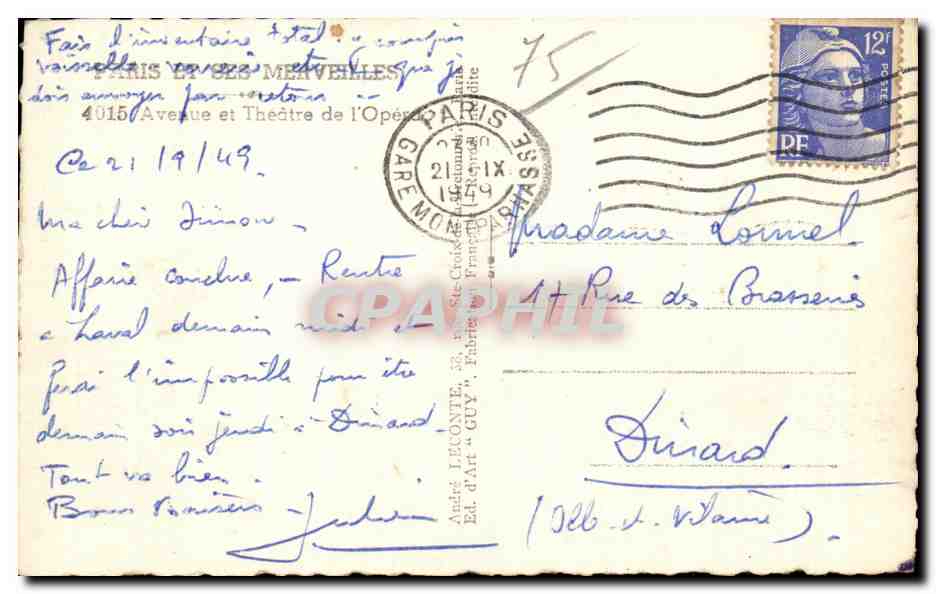 Fais l'inventaire total - compris
vaisselle verres etc que je
dois envoyer par retour --
PARIS ET SES MERVEILLES
4015 Avenue et Théâtre de l'Opéra
Ce 21/9/49.
Ma cher Simon -
Affaire conclue, - Rentre
à Laval demain midi et
ferai l'impossible pour être
demain soir jeudi à Dinard -
Tout va bien.
Bons baisers - Julien
75
PARIS
GARE MONTPARNASSE
21 - IX
1949
12F
POSTES
RF
André LECONTE, 38, rue Ste-Croix-de-la-Bretonnerie, Paris
Ed. d'Art "GUY". Fabrication Française - Reprod. interdite
Madame Lormel
17 Rue des Brasseries
Dinard
(Ille-et-Vilaine).
CPAPHIL